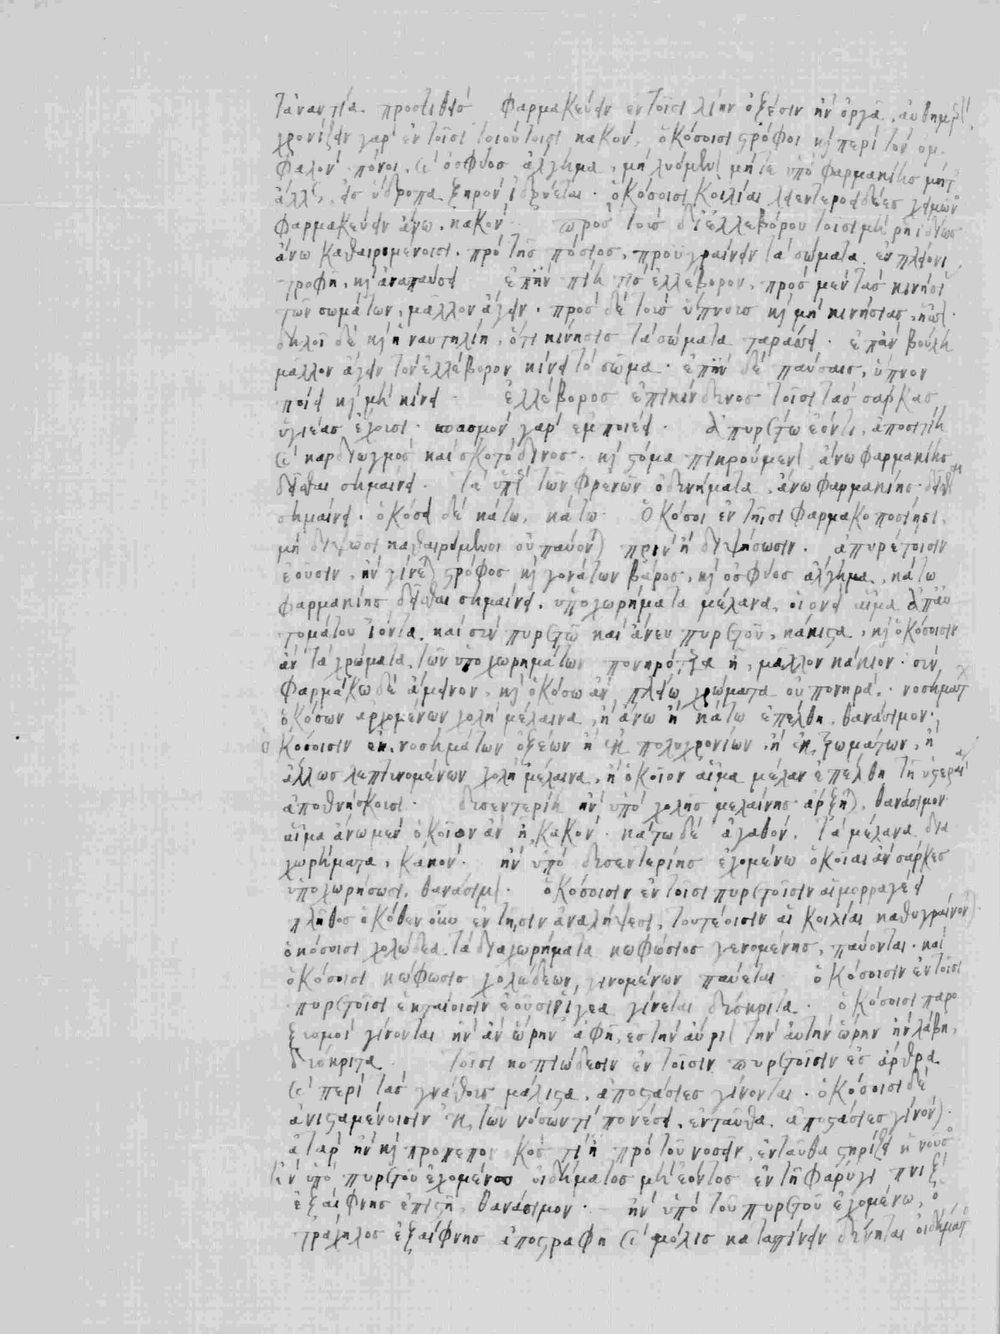 τἀναντία προστιθείς φαρμακεύειν ἐν τοῖσι λίην ὀξέσιν ἢν ὀργᾶ, αὐθημερί
χρονίζειν γὰρ ἐν τοῖσι τοιούτοισι κακόν. ὁκόσοισι στρόφοι κὴ περὶ τὸν ὀμ
φαλὸν πόνοι, κὴ ὀσφύος ἄλγημα, μὴ λυόμενα μήτε ὑπὸ φαρμακίης μήτ
ἄλλως, ἐς ὕδρωπα ξηρὸν ἱδρύεται. ὁκόσοισι κοιλίαι λιεντεριώδεες χειμῶνος
φαρμακεύειν ἄνω, κακόν. πρὸς τοὺς δι' ἐλλεβόρου τοῖσι μὴ ῥηιδίως
ἄνω καθαιρομένοισι, πρὸ τῆς πόσιος, προυγραίνειν τὰ σώματα ἐν πλείονι
τροφῆ, κὴ ἀναπαύσει ἐπὴν πίη τις ἐλλέβορον, πρὸς μὲν τὰς κινήσει
τῶν σωμάτων, μᾶλλον ἄγειν. πρὸς δὲ τοὺς ὕπνους κὴ μὴ κινήσιας, ἧσσον.
δηλοῖ δὲ κὴ ἡ ναυτιλίη, ὅτι κίνησις τὰ σώματα ταράσσει. ἐπὰν βούλη
μᾶλλον ἄγειν τὸν ἐλλέβορον κίνει τὸ σῶμα. ἐπὴν δὲ παύσαις, ὕπνον
ποίει κὴ μὴ κίνει. ἐλλέβορος ἐπικίνδυνος τοῖσι τὰς σάρκας
ὑγιέας ἔχουσι. σπασμὸν γὰρ ἐμποιέει. ἀπυρέτω ἐόντι, ἀποσιτίη
κὴ καρδιωγμὸς καὶ σκοτόδινος. κὴ στόμα πικρούμενον ἄνω φαρμακίης
δεῖσθαι σημαίνει. Τὰ ὑπὲρ τῶν φρενῶν ὀδυνήματα, ἄνω φαρμακίης δεῖσθαι
σημαίνει. ὁκόσα δὲ κάτω, κάτω. Ὁκόσοι ἐν τῆσι φαρμακοποσίησι
μὴ διψῶσι καθαιρόμενοι οὐ παύονται πρὶν ἢ διψήσωσιν. ἀπυρέτοισιν
ἐοῦσιν, ἢν γίνεται στρόφος κὴ γονάτων βάρος, κὴ ὀσφύος ἄλγημα, κάτω
φαρμακίης δεῖσθαι σημαίνει. ὑποχωρήματα μέλανα, οἷον αἷμα ἀπὸ αὐ
τομάτου ἰόντα, καὶ σὺν πυρετῶ καὶ ἄνευ πυρετοῦ, κάκιστα, κὴ ὁκόσοισιν
ἂν τὰ χρώματα τῶν ὑποχωρημάτων πονηρότερα ἦ, μᾶλλον κάκιον. σὺν
φαρμάκω δὲ ἄμεινον, κὴ ὁκόσω ἂν πλείω χρώματα οὐ πονηρά. νοσημάτων
ὁκόσων ἀρχομένων χολὴ μέλαινα, ἢ ἄνω ἢ κάτω ἐπέλθη, θανάσιμον.
ὁκόσοισιν ἐκ νοσημάτων ὀξέων ἢ ἐκ πολυχρονίων, ἢ ἐκ τρωμάτων, ἢ
ἄλλως λεπτυνομένων χολὴ μέλαινα, ἢ ὁκοῖον αἷμα μέλαν ἐπέλθη τῆ ὑστεραίη
ἀποθνήσκουσι. δυσεντερίη ἢν ὑπὸ χολῆς μελαίνης ἄρξηται, θανάσιμον
αἷμα ἄνω μὲν ὁκοῖον ἂν ἦ, κακόν. κάτω δὲ ἀγαθόν, τὰ μέλανα δια
χωρήματα, κακόν. ἢν ὑπὸ δυσεντερίης ἐχομένω ὁκοῖαι ἂν σάρκες
ὑποχωρήσωσι, θανάσιμον. ὁκόσοισιν ἐν τοῖσι πυρετοῖσιν αἱμορραγέει
πλῆθος ὁκόθεν οὖν ἐν τῆσιν ἀναλήψεσι, τουτέοισιν αἱ κοιλίαι καθυγραίνονται
ὁκόσοισι χολώδεα τὰ διαχωρήματα κωφώσιος γενομένης, παύονται. καὶ
ὁκόσοισι κώφωσις χολωδέων γινομένων παύεται ὁκόσοισιν ἐν τοῖσι
πυρετοῖσι ἑκταίοισιν ἐοῦσι ῥίγεα γίνεται δύσκριτα. ὁκόσοισι παρο
ξυσμοὶ γίνονται ἢν ἂν ὥρην ἀφῆ, ἐς τὴν αὔριον τὴν αὐτὴν ὥρην ἢν λάβη,
δύσκριτα. τοῖσι κοπιώδεσιν ἐν τοῖσιν πυρετοῖσιν ἐς ἄρθρα
κὴ περὶ τὰς γνάθους μάλιστα, ἀποστάσιες γίνονται. ὁκόσοισι δὲ
ἀνισταμένοισιν ἐκ τῶν νόσων τι πονέσει, ἐνταῦθα ἀποστάσιες γίνονται.
ἀτὰρ ἢν κὴ προπεπονηκός τι ἦ πρὸ τοῦ νοσεῖν, ἐνταῦθα στηρίζει ἡ νοῦσος
ἢν ὑπὸ πυρετοῦ ἐχομένω οἰδήματος μὴ ἐόντος ἐν τῆ φάρυγι πνὶξ
ἐξαίφνης ἐπιστῆ, θανάσιμον. ἢν ὑπὸ τοῦ πυρετοῦ ἐχομένω, ὁ
τράχηλος ἐξαίφνης ἀποστραφῆ κὴ μόλις καταπίνειν δύνηται οἰδήματος